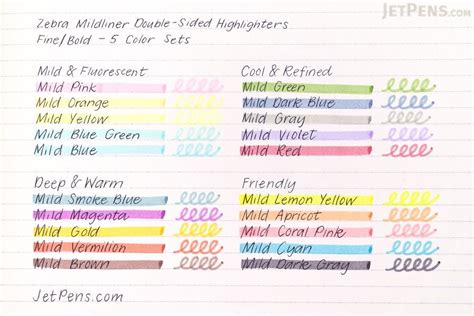 JetPens.com
Zebra Mildliner Double-Sided Highlighters
Fine/Bold - 5 Color Sets
Mild & Fluorescent
Mild Pink
Mild Orange
Mild Yellow
Mild Blue Green
Mild Blue
Cool & Refined
Mild Green
Mild Dark Blue
Mild Gray
Mild Violet
Mild Red
Deep & Warm
Mild Smoke Blue
Mild Magenta
Mild Gold
Mild Vermilion
Mild Brown
Friendly
Mild Lemon Yellow
Mild Apricot
Mild Coral Pink
Mild Cyan
Mild Dark Gray
JetPens.com